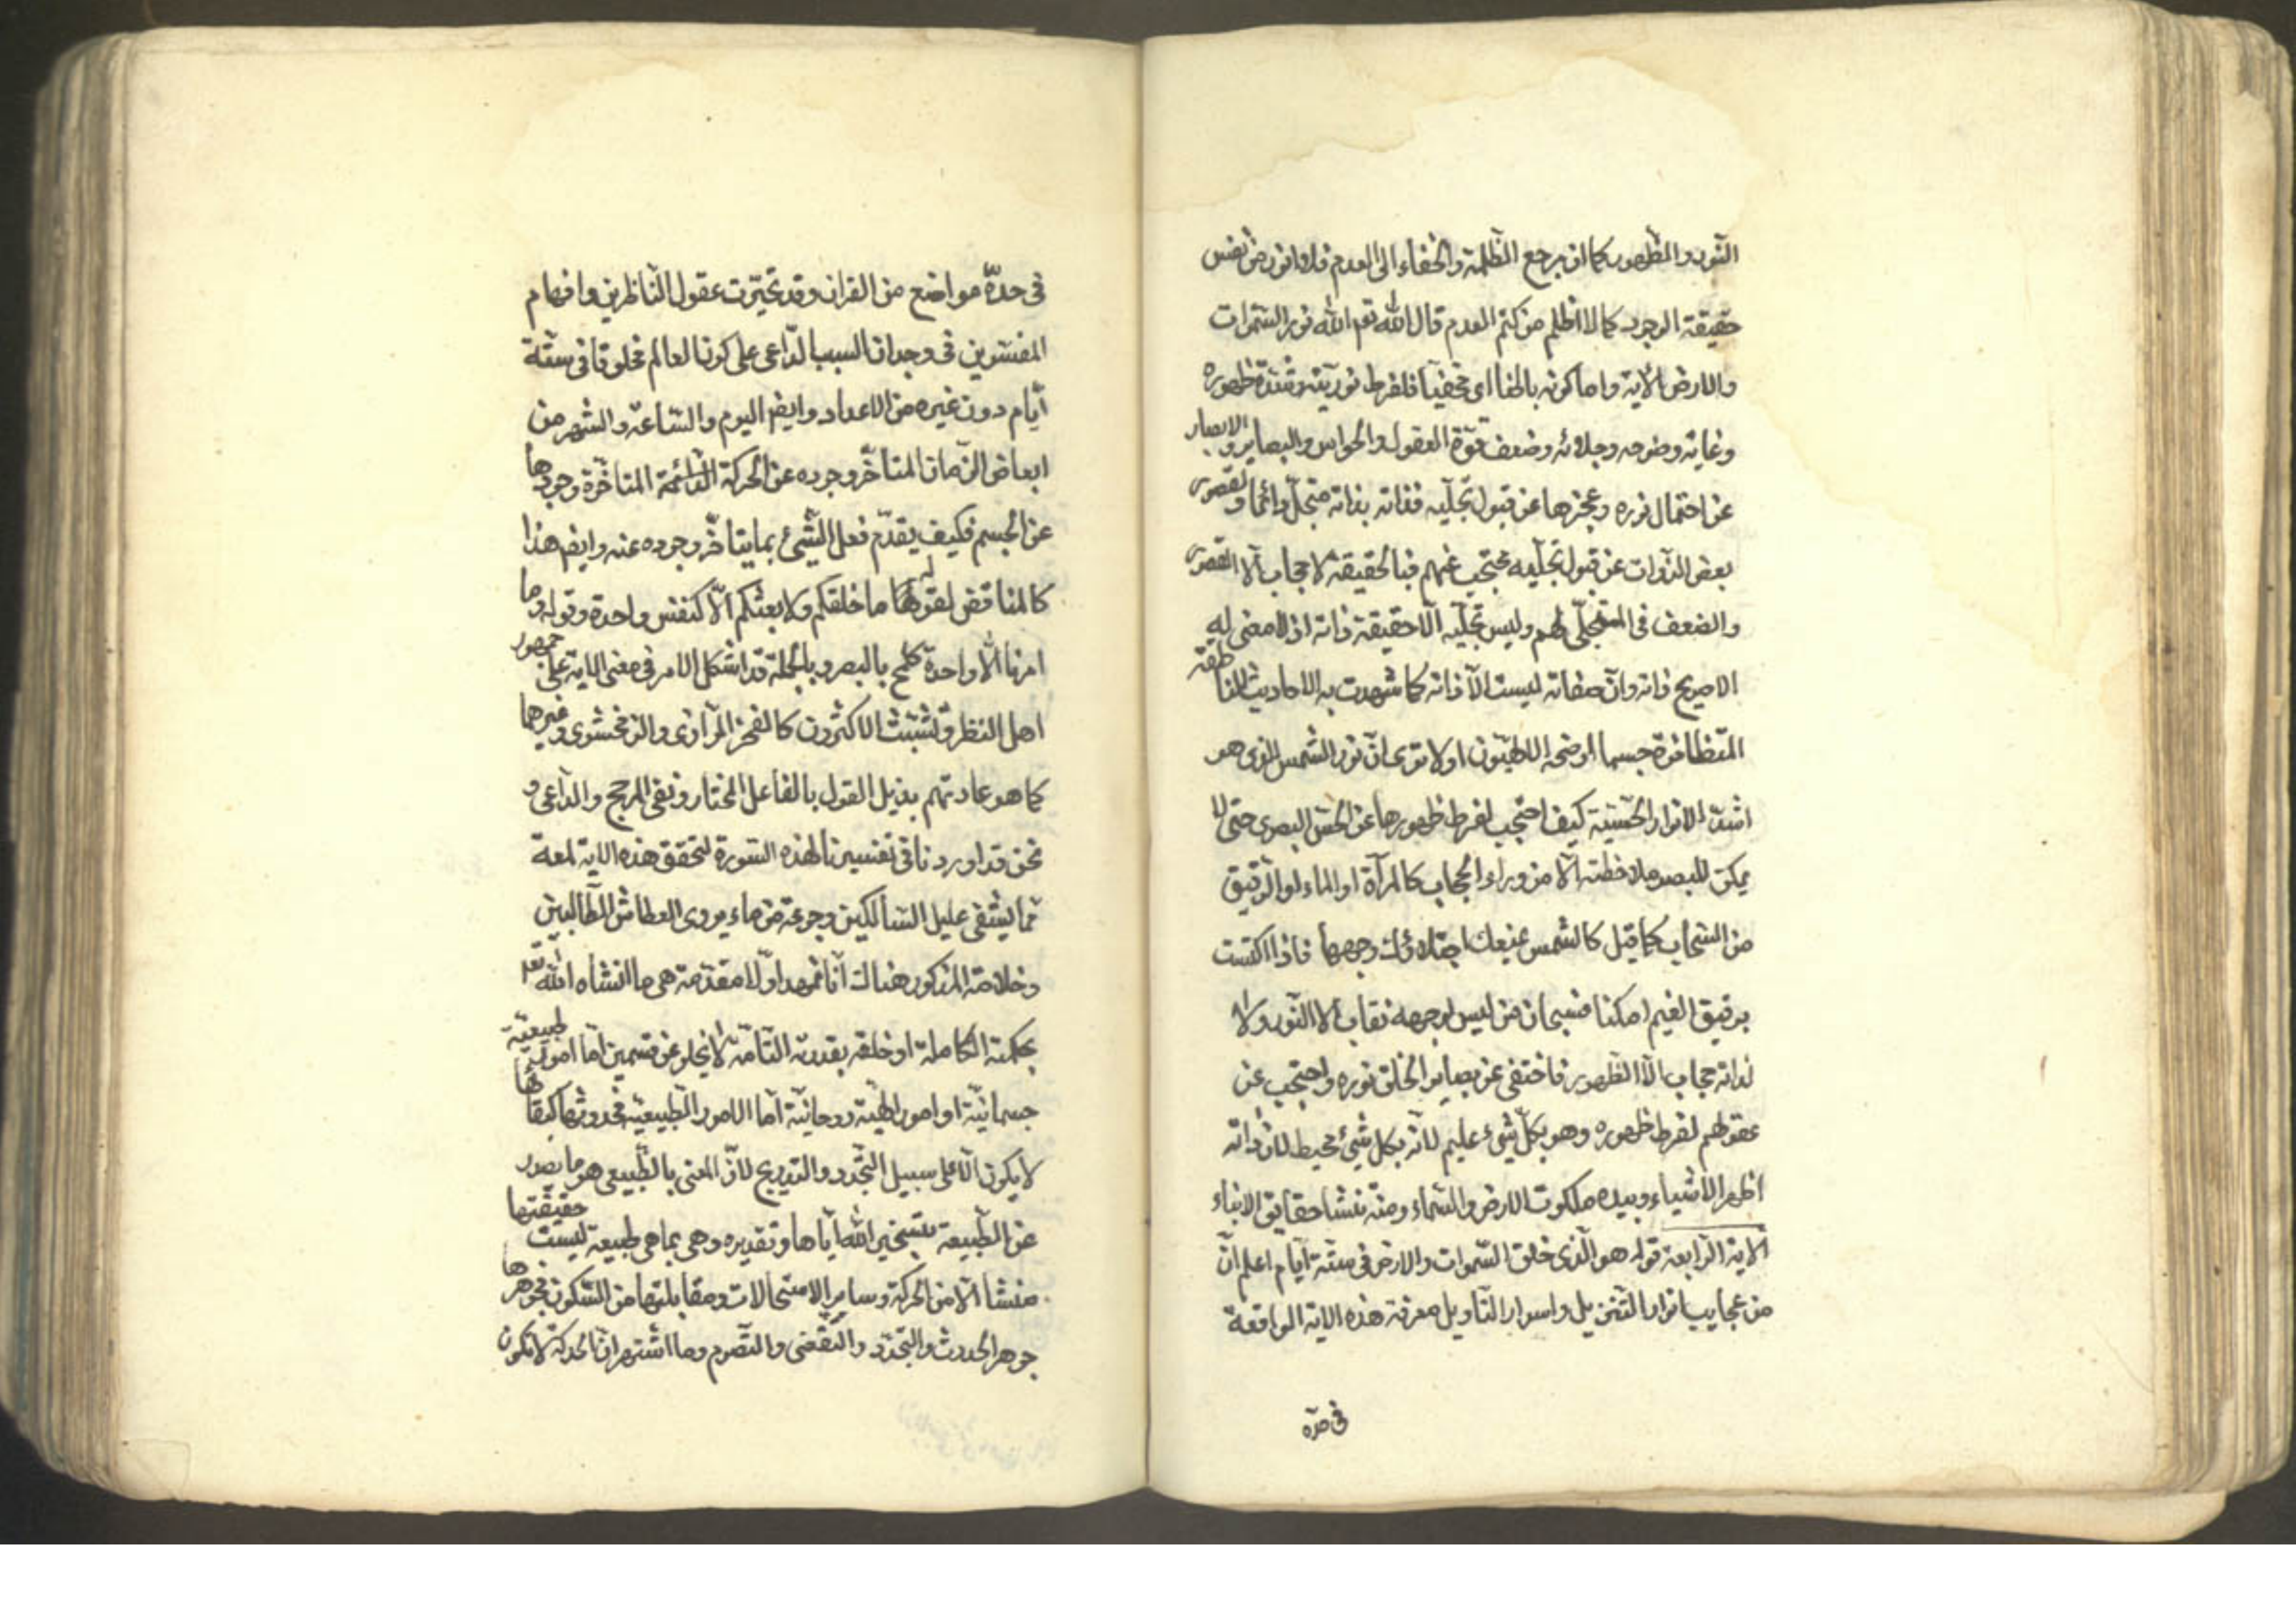 النور والظهور كما ان مرجع الظلمة والخفاء الى العدم فلا انور من نفس
حقيقة الوجود كما لا اظلم من كتم العدم قال الله تعم الله نور السموات
والارض الاية واما كونه باطنا اى مخفيا فلفرط نوريته وشدة ظهوره
وغاية وضوحه وجلائه وضعف قوة العقول والحواس والبصاير والابصار
عن احتمال نوره وعجزها عن قبول تجليه فذاته بذاته متجل دائما ولقصور
بعض الذوات عن قبول تجليه محتجب عنهم فبالحقيقة لا حجاب الا القصور
والضعف فى المتجلى لهم وليس تجليه الا حقيقة ذاته اذ لا معنى له
الا صريح ذاته وان صفاته ليست الا ذاته كما شهدت به الاحاديث الناطقة
المتظافرة حسبما اوضحه الالهيون اولا ترى ان نور الشمس الذى هو
اشد الانوار الحسية كيف احتجب لفرط ظهورها عن الحس البصرى حتى لا
يمكن للبصر ملاحظته الا من وراء الحجاب كالمرآة او الماء او الرقيق
من السحاب كما قيل كالشمس يمنعك اجتلاؤك وجهها فاذا اكتست
برقيق الغيم امكنا فسبحان من ليس لوجهه نقاب الا النور ولا
لذاته حجاب الا الظهور فاختفى عن بصاير الخلق نوره واحتجب عن
عقولهم لفرط ظهوره وهو بكل شىء عليم لانه بكل شىء محيط لان ذاته
اظهر الاشياء وبيده ملكوت الارض والسماء ومنه ينشا حقايق الانباء
الاية الرابعة قوله هو الذى خلق السموات والارض فى ستة ايام اعلم ان
من عجايب انوار التنزيل واسرار التاويل معرفة هذه الاية الواقعة
فى حدة
فى حدة مواضع من القران وقد تحيرت عقول الناظرين وافهام
المفسرين فى وجدان السبب الداعى على كون العالم مخلوقا فى ستة
ايام دون غيره من الاعداد وايضا اليوم والساعة والشهر من
ابعاض الزمان المتاخر وجوده عن الحركة الدائمة المتاخرة وجودها
عن الجسم فكيف يقدم فعل الشىء بما يتاخر وجوده عنه وايضا هذا
كالمناقض لقوله ما خلقكم ولا بعثكم الا كنفس واحدة وقوله وما
امرنا الا واحدة كلمح بالبصر وبالجملة قد اشكل الامر فى معنى الاية على جمهور
اهل النظر وتشبث الاكثرون كالفخر الرازى والزمخشرى وغيرهما
كما هو عادتهم بذيل القول بالفاعل المختار ونفى المرجح والداعى و
نحن قد اوردنا فى تفسيرنا لهذه السورة لتحقق هذه الاية لمعة
مما يشفى عليل السالكين وجرعة من ماء يروى العطاش الطالبين
وخلاصة المذكور هناك انا نمهد اولا مقدمة هى ما انشاه الله تعم
بحكمته الكاملة او خلقه بقدرته التامة لا يخلو عن قسمين اما امور طبيعية
جسمانية او امور الهية روحانية اما الامور الطبيعية فحدوثها كبقائها
لا يكون الا على سبيل التجدد والتدريج لان المعنى بالطبيعى هو ما يصدر
عن الطبيعة بتسخير الله اياها وتقديره وهى بما هى طبيعة ليست حقيقتها
منشا الا من الحركة وساير الاستحالات ومقابلتها من السكون فجوهرها
جوهر الحدوث والتجدد والتقضى والتصرم وما اشتهر ان الحركة لا تكون